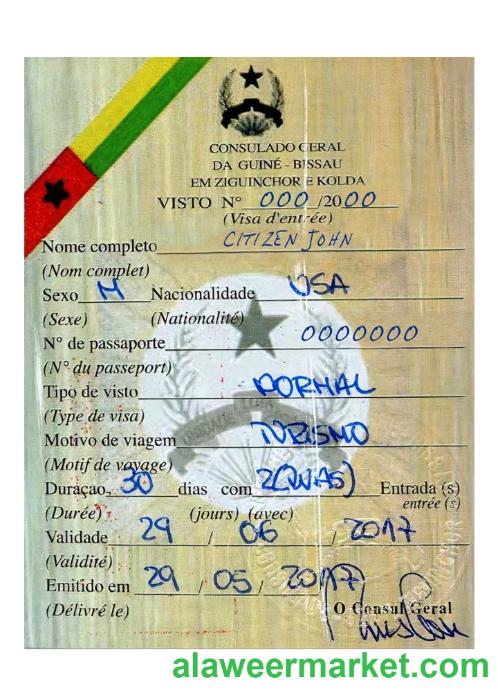 CONSULADO GERAL
DA GUINÉ - BISSAU
EM ZIGUINCHOR E KOLDA
VISTO Nº 000 /2000
(Visa d'entrée)
Nome completo CITIZEN JOHN
(Nom complet)
Sexo M Nacionalidade USA
(Sexe) (Nationalité)
Nº de passaporte 0000000
(Nº du passeport)
Tipo de visto NORMAL
(Type de visa)
Motivo de viagem TURISMO
(Motif de voyage)
Duraçao 30 dias com 2(DUAS) Entrada (s)
(Durée) (jours) (avec) entrée (s)
Validade 29 / 06 / 2017
(Validité)
Emitido em 29 / 05 / 2017
(Délivré le) O Consul Geral
alaweermarket.com